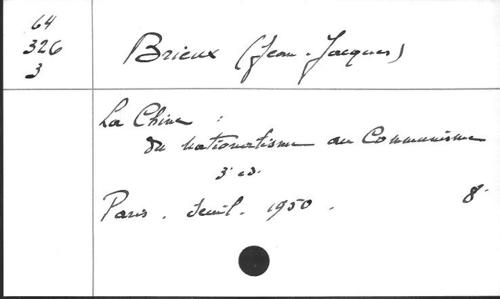 64
326
3
Brieux (Jean-Jacques)
La Chine :
du nationalisme au Communisme
3e ed.
Paris. Seuil. 1950.
8°